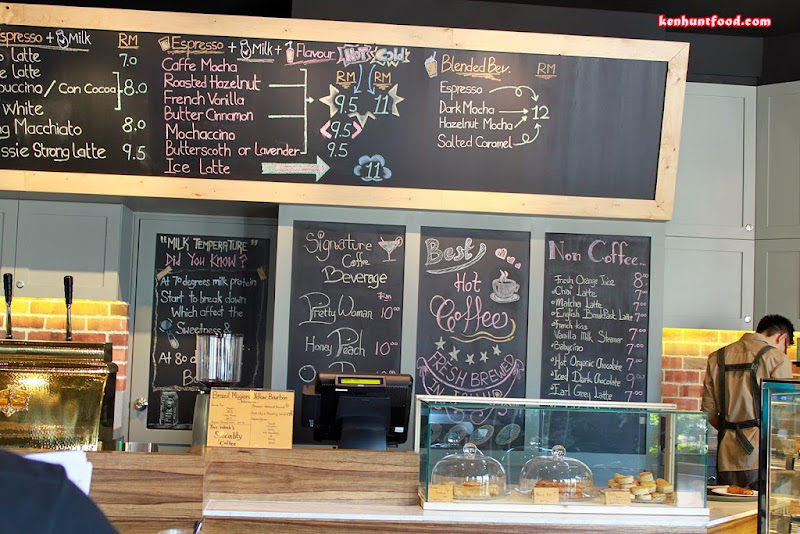 kenhuntfood.com
Espresso + Milk RM
Latte 7.0
Latte
/ Con Cocoa 8.0
White
Macchiato 8.0
Strong Latte 9.5
Espresso + Milk + 1 Flavour Hot Cold
RM RM
Caffe Mocha
Roasted Hazelnut
French Vanilla 9.5 11
Butter Cinnamon
Mochaccino 9.5
Butterscoth or lavender 9.5
Ice Latte 11
Blended Bev. RM
Espresso
Dark Mocha 12
Hazelnut Mocha
Salted Caramel
"MILK TEMPERATURE"
Did You Know ?
At 70 degrees milk protein
Start to break down
Which affect the
Sweetness &
At 80 d
Signature
Coffee
Beverage
RM
Pretty Woman 10
Honey Peach 10
Best
Hot
Coffee
FRESH BREWED
Non Coffee...
Fresh Orange Juice 8
Chai Latte 7
Matcha Latte 7
English Breakfast Latte 7
French kiss 7
Vanilla Milk Steamer 7
Babycino
Hot Organic Chocolate 9
Iced Dark Chocolate 9
Earl Grey Latte 7
Yellow Bourbon
Speciality
Coffee